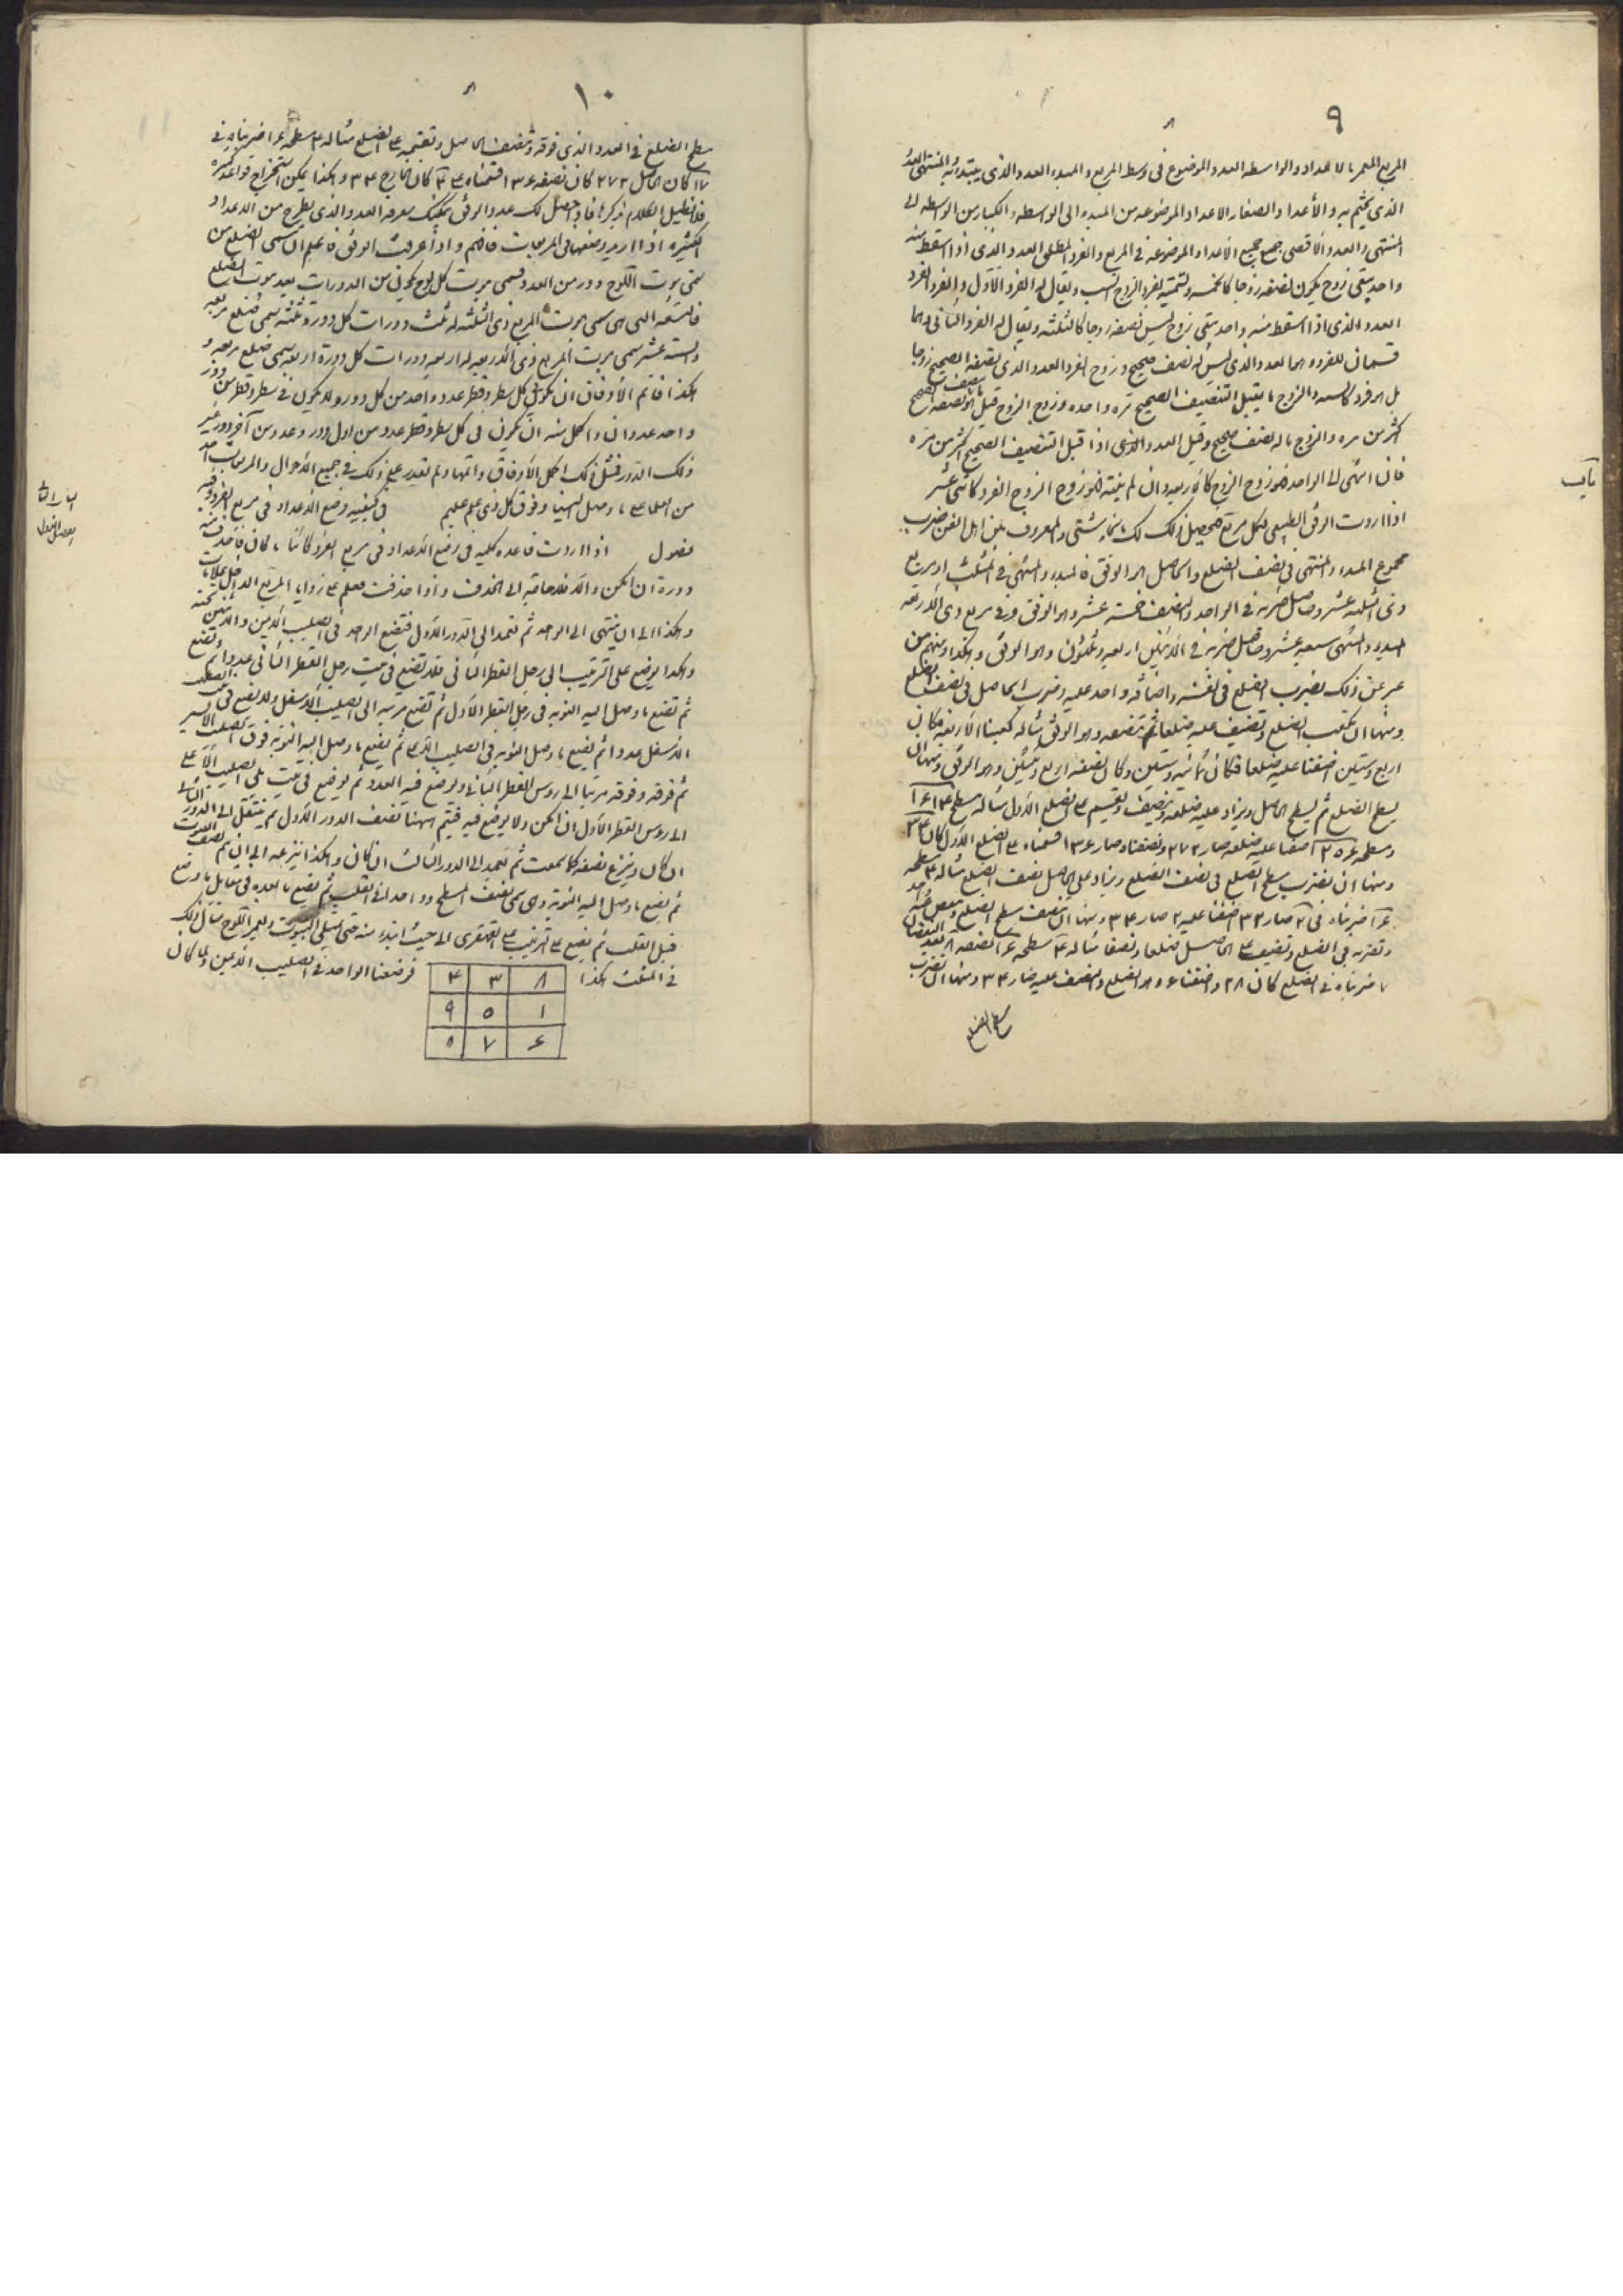 ٩
المربع المعمر بالاعداد والواسطه العدد الموضوع فى وسط المربع و المبدء العدد الذى يبتدء به والمنتهى العدد
الذى يختم به والأعداد الصغار الاعداد الموضوعه من المبدء الى الواسطه والكبار من الواسطه الى
المنتهى والعدد الاقصى جمع جميع الأعداد الموضوعه فى المربع والفرد المطلق العدد الذى اذا اسقط منه
واحد يبقى زوج يكون نصفه زوجا كالخمسه وتسميته بفرد الزوج انسب ويقال له الفرد الاول والفرد الفرد
العدد الذى اذا اسقط منه واحد يبقى زوج ليس نصفه زوجا كالثلثه ويقال له الفرد الثانى وهما
قسمان للفرد وهما العدد الذى ليس له نصف صحيح وزوج الفرد العدد الذى نصفه الصحيح زوجا
بل هو فرد كالسته والزوج ما يقبل التنصيف الصحيح مره واحده وزوج الزوج قيل ما نصفه الصحيح
اكثر من مره والزوج ما له نصف صحيح وقيل العدد الذى اذا قبل التنصيف الصحيح اكثر من مره
فان انتهى الى الواحد فهو زوج الزوج كالاربعه وان لم ينته فهو زوج الزوج الفرد كاثنى عشر
اذا اردت الوفق الطبيعى لكل مربع فتحصيل ذلك لك بانحاء شتى والمعروف بين اهل الفن ضرب
مجموع المبدء والمنتهى فى نصف الضلع والحاصل هو الوفق فالمبدء والمنتهى فى المثلث او مربع
ذى الثلثه عشر وحاصل ضربه فى الواحد والنصف خمسة عشر وهو الوفق وفى مربع ذى الاربعه
المبدء والمنتهى سبعة عشر وحاصل ضربه فى الاثنين اربعه وثلثون وهو الوفق وهكذا ومنهم من
عبر عن ذلك بضرب الضلع فى نفسه واضافه واحد عليه وضرب الحاصل فى نصف الضلع
ومنها ان تكعب الضلع وتضيف عليه ضلعا ثم تنصفه وهو الوفق مثاله كعبنا الاربعه فكان
اربع وستين اضفنا عليه ضلعا فكان ثمانيه وستين وكان نصفه اربع وثلثين وهو الوفق ومنها ان
يسطح الضلع ثم يسطح الحاصل ويزاد عليه ضلعه وينصف ويقسم على الضلع الاول مثاله سطح ٤ ١٦
وسطحه ٢٥٦ اضفنا عليه ضلعه صار ٢٧٢ ونصفناه صار ١٣٦ قسمناه على الضلع الاول كان ٣٤
ومنها ان يضرب سطح الضلع فى نصف الضلع ويزاد على الحاصل نصف الضلع مثاله ٤ سطحه
١٦ ضربناه فى ٢ صار ٣٢ اضفنا عليه ٢ صار ٣٤ ومنها ان ينصف سطح الضلع
وتضربه فى الضلع وتضيف على الحاصل ضلعا ونصفا مثاله ٤ سطحه ١٦ نصفه ٨
٧ ضربناه فى الضلع كان ٢٨ واضفنا ٦ وهو الضلع والنصف عليه صار ٣٤ ومنها ان تضرب
سطح الضلع
١٠
سطح الضلع فى العدد الذى فوقه وتنصف الحاصل وتقسمه على الضلع مثاله ٤ سطحه ١٦ ضربناه فى
١٧ كان الحاصل ٢٧٢ كان نصفه ١٣٦ قسمناه على ٤ كان الخارج ٣٤ وهكذا يمكن استخراج قواعد كثيره
فلا نطيل الكلام بذكرها فاذا حصل لك عدد الوفق يمكنك معرفه العدد الذى يطرح من الاعداد
الكثيره اذا اريد وضعها فى المربعات فافهم واذا عرفت الوفق فاعلم ان سمى الضلع من
سمى بيوت اللوح دور من العدد فسمى بيوت كل لوح يكون من الدورات بعد بيوت الضلع
فالتسعه التى هى سمى بيوت المربع ذى الثلثه له ثلث دورات كل دورة ثلثه سمى ضلع مربعه
والسته عشر سمى بيوت المربع ذى الاربعه له اربعه دورات كل دورة اربعه سمى ضلع مربعه و
هكذا فاتم الاوفاق ان يكون فى كل سطر وقطر عدد واحد من كل دور ولا يكون فى سطر وقطر من دور
واحد عددان واكمل منه ان يكون فى كل سطر وقطر عدد من اول دور وعدد من آخر دور غير
ذلك الدور فمثل ذلك اكمل الاوفاق واتمها ولم يقدر على ذلك فى جميع الاحوال والمربعات احد
من العلماء ما وصل الينا وفوق كل ذى علم عليم فى كيفيه وضع الاعداد فى مربع الفرد وفيه
فصول اذا اردت قاعده كليه فى وضع الاعداد فى مربع الفرد كائنا ما كان فاحذف منه
دورة ان امكن والا فلا حاجه الى الحذف واذا حذفت فعلم على زوايا المربع الداخل علامات
وهكذا الى ان ينتهى الى الواحد ثم تعمد الى الدور الاول فتضع الواحد فى الصليب الايمن والاثنين تحته
وهكذا يوضع على الترتيب الى رجل القطر الثانى فلا تضع فى بيت رجل القطر الثانى عددا ثم تضع
ثم تضع ما وصل اليه النوبه فى رجل القطر الاول ثم تضع مرتبه الى الصليب الاسفل ولا يضع فى بيت الصليب
الاسفل عددا ثم يضع ما وصل النوبه فى الصليب الاعلى ثم يضع ما وصل اليه النوبه فوق الصليب الايسر
ثم فوقه وفوقه مرتبا الى روس القطر الثانى ويوضع فيه العدد ثم يوضع فى بيت يلى الصليب الاعلى
الى روس القطر الاول ان امكن ولا يوضع فيه فيتم ههنا نصف الدور الاول ثم ينتقل الى الدور الثانى
ان كان وينزع نصفه كما سمعت ثم تعمد الى الدور الثالث ان كان وهكذا ينزعه الى ان تم نصف البيوت
ثم يضع ما وصل اليه النوبه وهى سمى نصف المسطح وواحد فى القلب ثم يضع ما بعده فى مقابل ما وضع
قبل القلب ثم يضع على ترتيب القهقرى الى حيث ابتدء منه حتى تمتلى البيوت ويعمر اللوح مثال ذلك
فى المثلث هكذا فوضعنا الواحد فى الصليب الايمن ولما كان
٨ ٣ ٤
١ ٥ ٩
٦ ٧ ٢